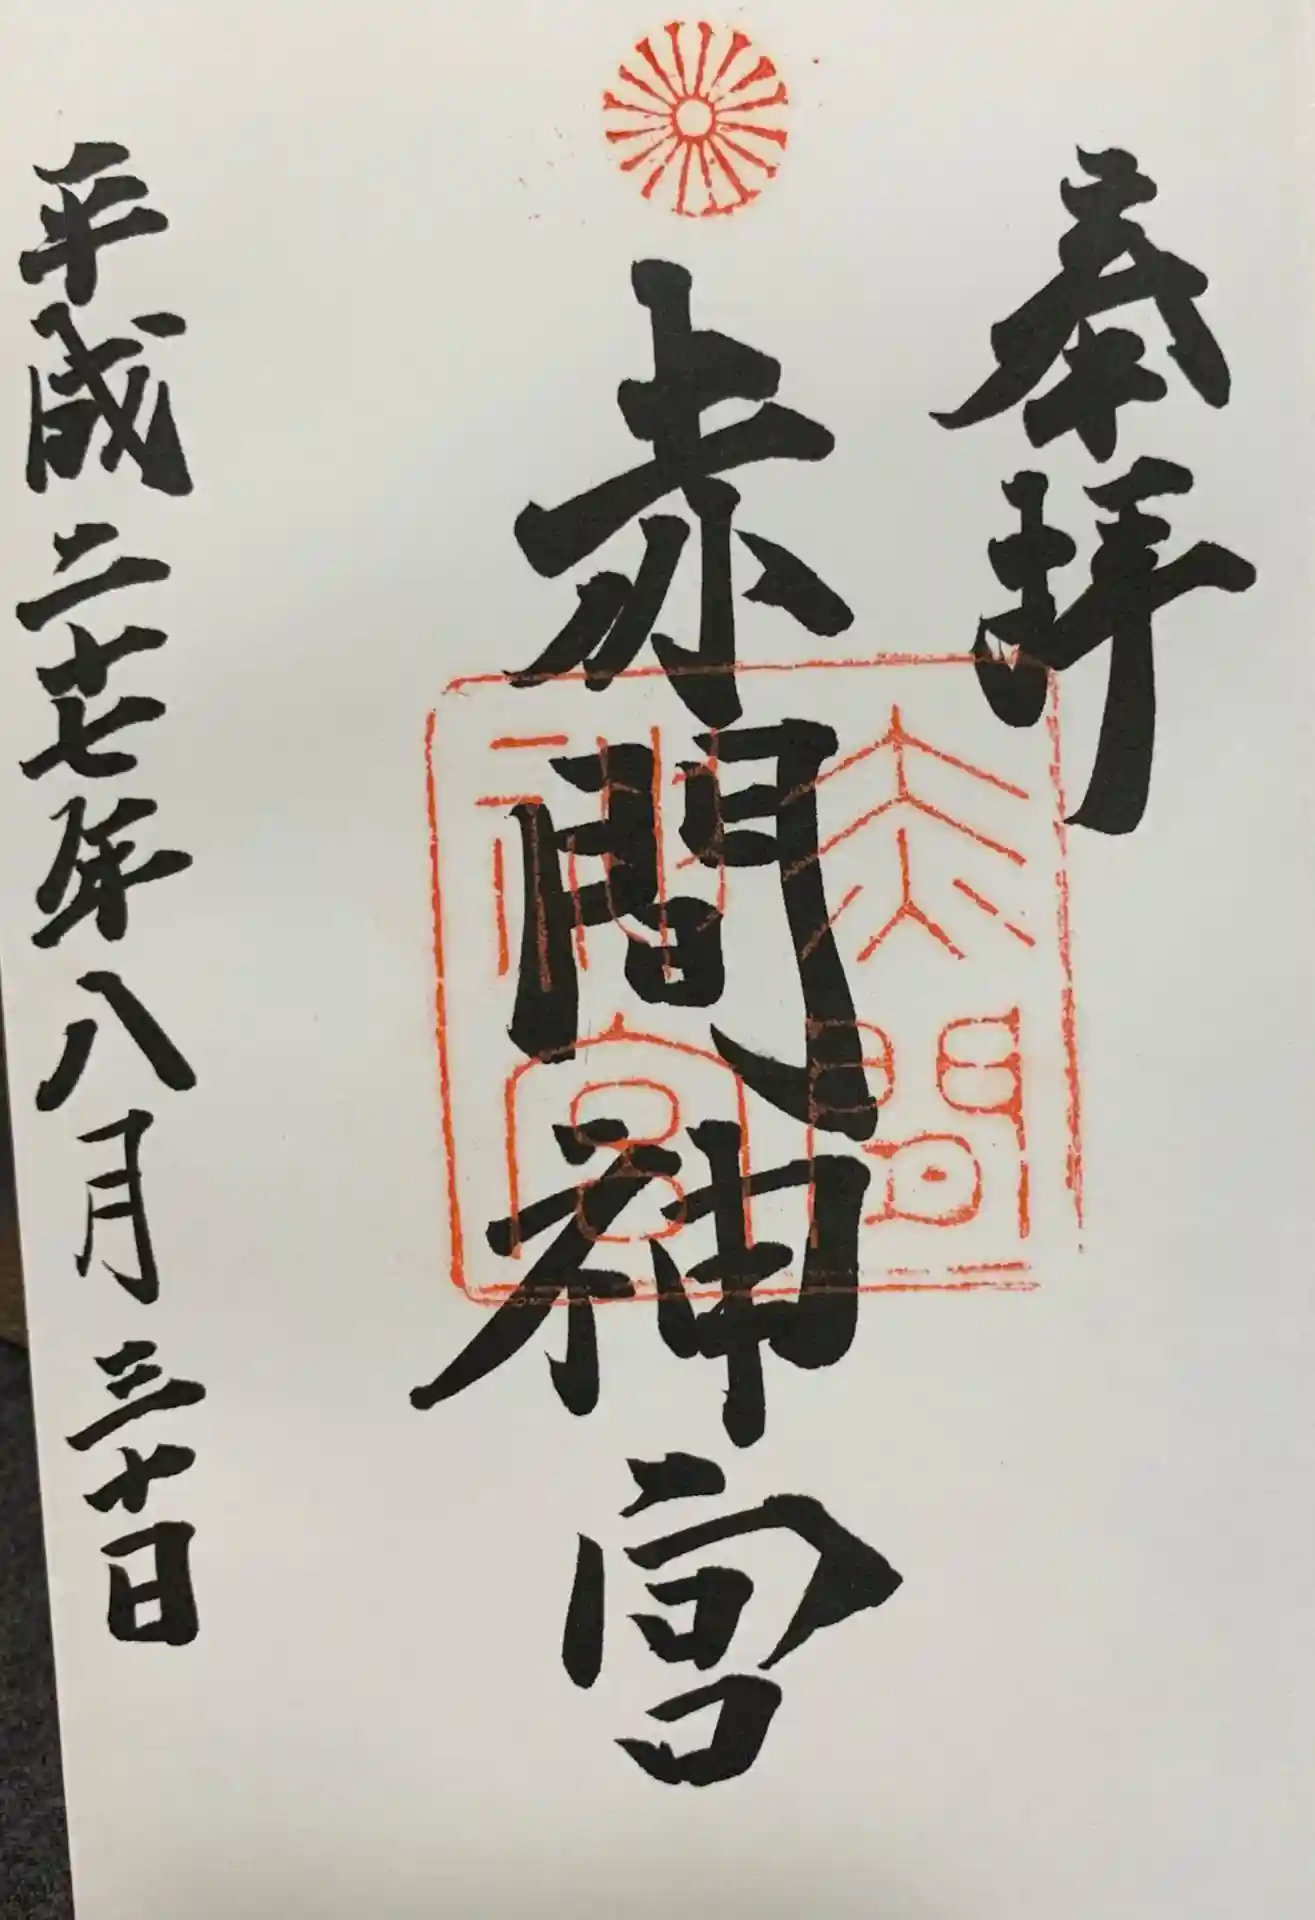 奉拝
赤間神宮
赤間
神宮
平成二十七年八月三十日